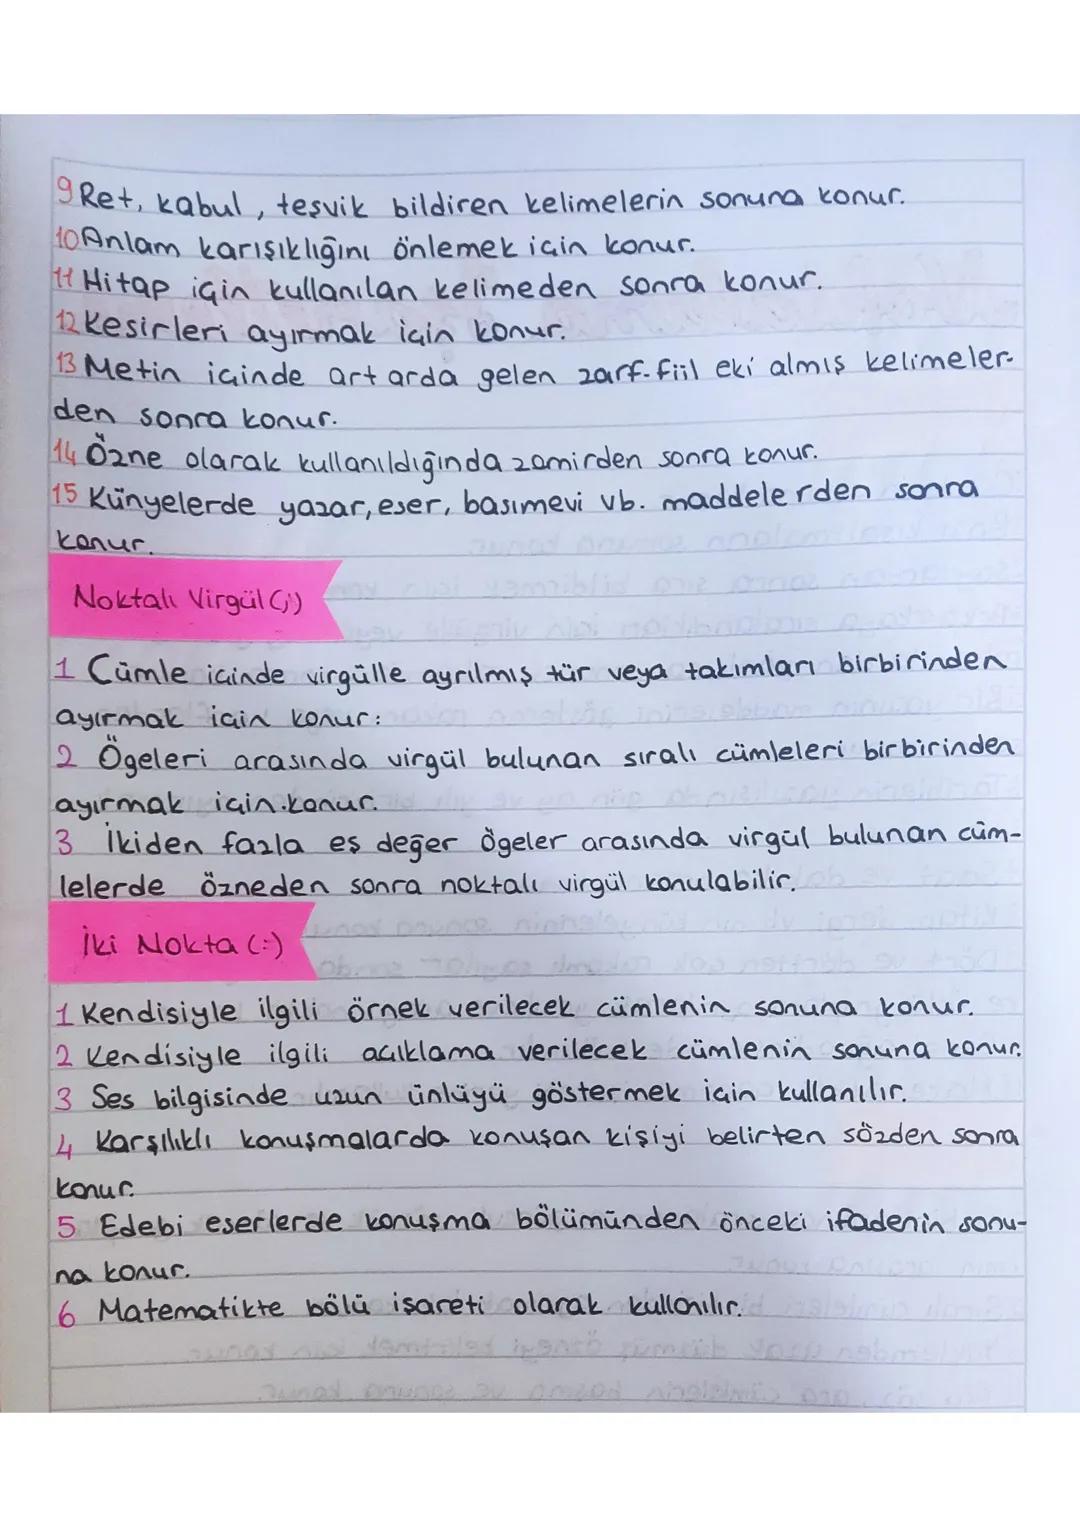 9 Ret, kabul, teşvik bildiren kelimelerin sonuna konur.
10 Anlam karışıklığını önlemek için konur.
11 Hitap için kullanılan kelimeden sonra konur.
12 Kesirleri ayırmak için konur.
13 Metin içinde art arda gelen zarf-fiil eki almış kelimeler-
den sonra konur.
14 Özne olarak kullanıldığında zamirden sonra konur.
15 Künyelerde yazar, eser, basımevi vb. maddelerden sonra
konur.
Noktalı Virgül (;)
1 Cümle içinde virgülle ayrılmış tür veya takımları birbirinden
ayırmak için konur:
2 Ögeleri arasında virgül bulunan sıralı cümleleri birbirinden
ayırmak için konur.
3 İkiden fazla eş değer ögeler arasında virgül bulunan cüm-
lelerde özneden sonra noktalı virgül konulabilir.
İki Nokta (:)
1 Kendisiyle ilgili örnek verilecek cümlenin sonuna konur.
2 Kendisiyle ilgili açıklama verilecek cümlenin sonuna konur.
3 Ses bilgisinde uzun ünlüyü göstermek için kullanılır.
4 Karşılıklı konuşmalarda konuşan kişiyi belirten sözden sonra
konur.
5 Edebi eserlerde konuşma bölümünden önceki ifadenin sonu-
na konur.
6 Matematikte bölü işareti olarak kullanılır.